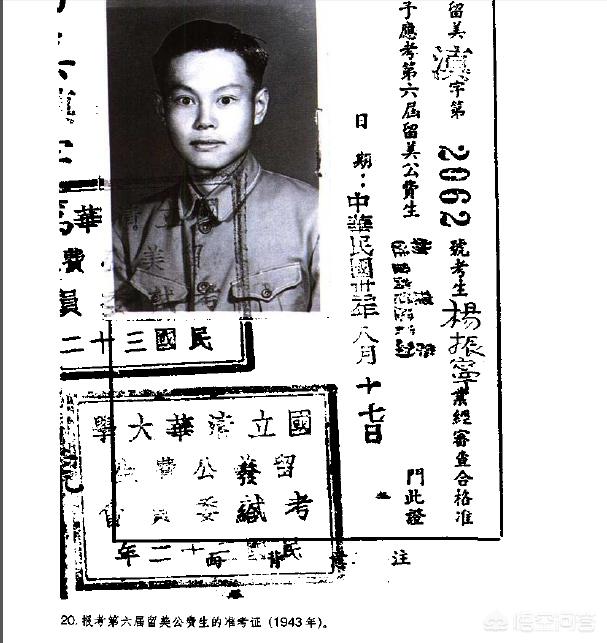 留美滇字第2062號考生楊振寧業經審查合格准
予應考第六屆留美公費生
門此證
日期：中華民國卅二年八月十七日
注
華
費
員
民國三十二
國立清華大學
留美公費生
考試委員會
民國三十二年
20. 报考第六届留美公费生的准考证 (1943 年)。
悟空问答